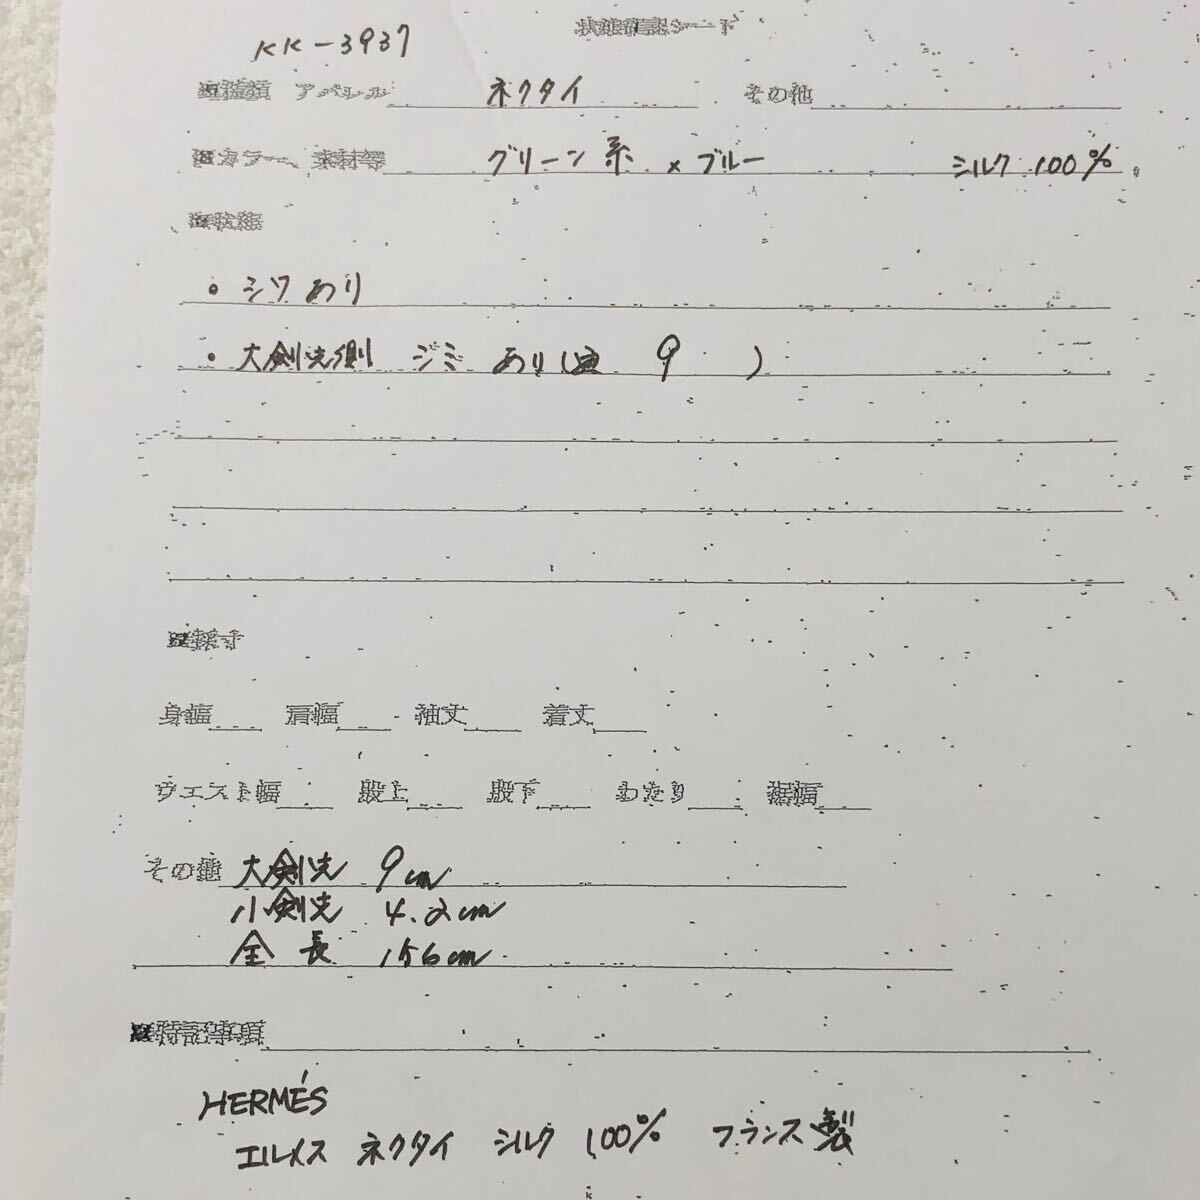 状態確認シート
KK-3937
■種類 アパレル ネクタイ その他
■カラー、素材等 グリーン系 × ブルー シルク 100%
■状態
・シワあり
・大剣先側 ジミ あり( 9 )
■採寸
身幅 肩幅 袖丈 着丈
ウエスト幅 股上 股下 わたり 裾幅
その他 大剣先 9cm
小剣先 4.2cm
全長 156cm
■特記事項
HERMÉS
エルメス ネクタイ シルク 100% フランス製